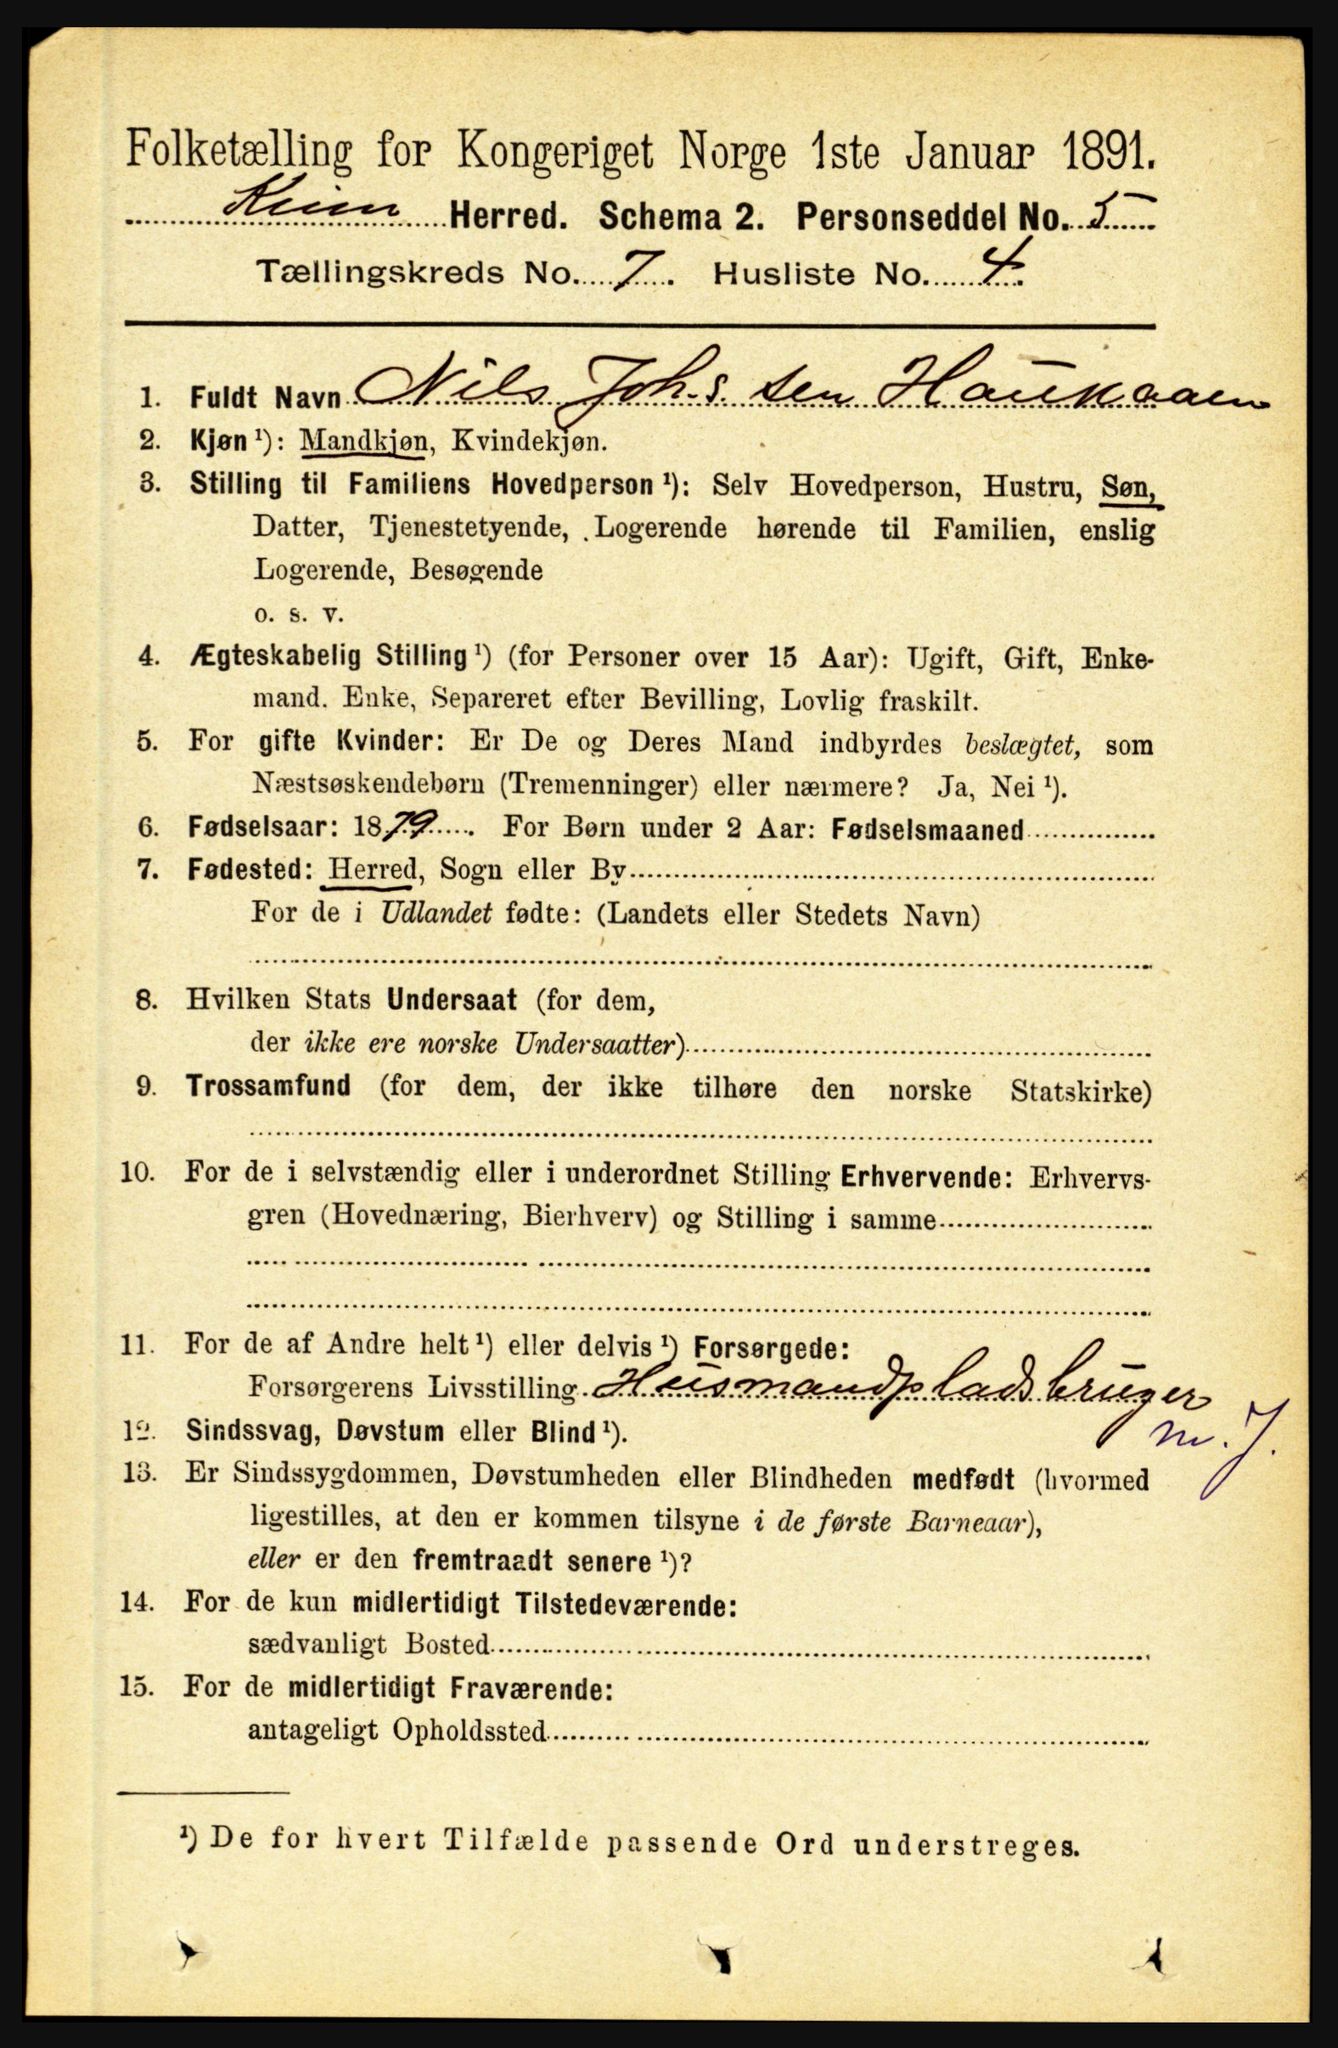 Folketælling for Kongeriget Norge 1ste Januar 1891.
Kinn Herred. Schema 2. Personseddel No. 5
Tællingskreds No. 7. Husliste No. 4.
1. Fuldt Navn Nils Johs. sen Haukaaen
2. Kjøn ¹): Mandkjøn, Kvindekjøn.
3. Stilling til Familiens Hovedperson ¹): Selv Hovedperson, Hustru, Søn,
Datter, Tjenestetyende, Logerende hørende til Familien, enslig
Logerende, Besøgende
o. s. v.
4. Ægteskabelig Stilling ¹) (for Personer over 15 Aar): Ugift, Gift, Enke-
mand. Enke, Separeret efter Bevilling, Lovlig fraskilt.
5. For gifte Kvinder: Er De og Deres Mand indbyrdes beslægtet, som
Næstsøskendebørn (Tremenninger) eller nærmere? Ja, Nei ¹).
6. Fødselsaar: 1879. For Børn under 2 Aar: Fødselsmaaned
7. Fødested: Herred, Sogn eller By
For de i Udlandet fødte: (Landets eller Stedets Navn)
8. Hvilken Stats Undersaat (for dem,
der ikke ere norske Undersaatter)
9. Trossamfund (for dem, der ikke tilhøre den norske Statskirke)
10. For de i selvstændig eller i underordnet Stilling Erhvervende: Erhvervs-
gren (Hovednæring, Bierhverv) og Stilling i samme
11. For de af Andre helt ¹) eller delvis ¹) Forsørgede:
Forsørgerens Livsstilling Husmandspladsbruger
m. J.
12. Sindssvag, Døvstum eller Blind ¹).
13. Er Sindssygdommen, Døvstumheden eller Blindheden medfødt (hvormed
ligestilles, at den er kommen tilsyne i de første Barneaar),
eller er den fremtraadt senere ¹)?
14. For de kun midlertidigt Tilstedeværende:
sædvanligt Bosted
15. For de midlertidigt Fraværende:
antageligt Opholdssted
¹) De for hvert Tilfælde passende Ord understreges.